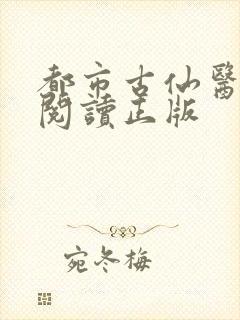 都市古仙醫
閱讀正版
宛冬梅